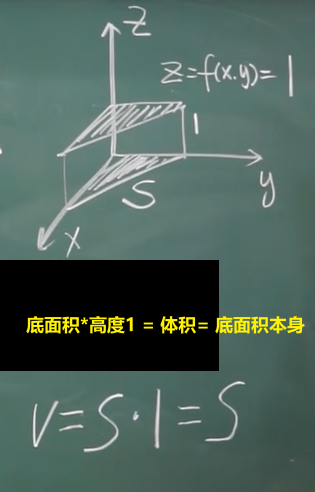 Z
Z=f(x.y)=1
1
S
y
x
底面积*高度1 = 体积= 底面积本身
V=S·1=S